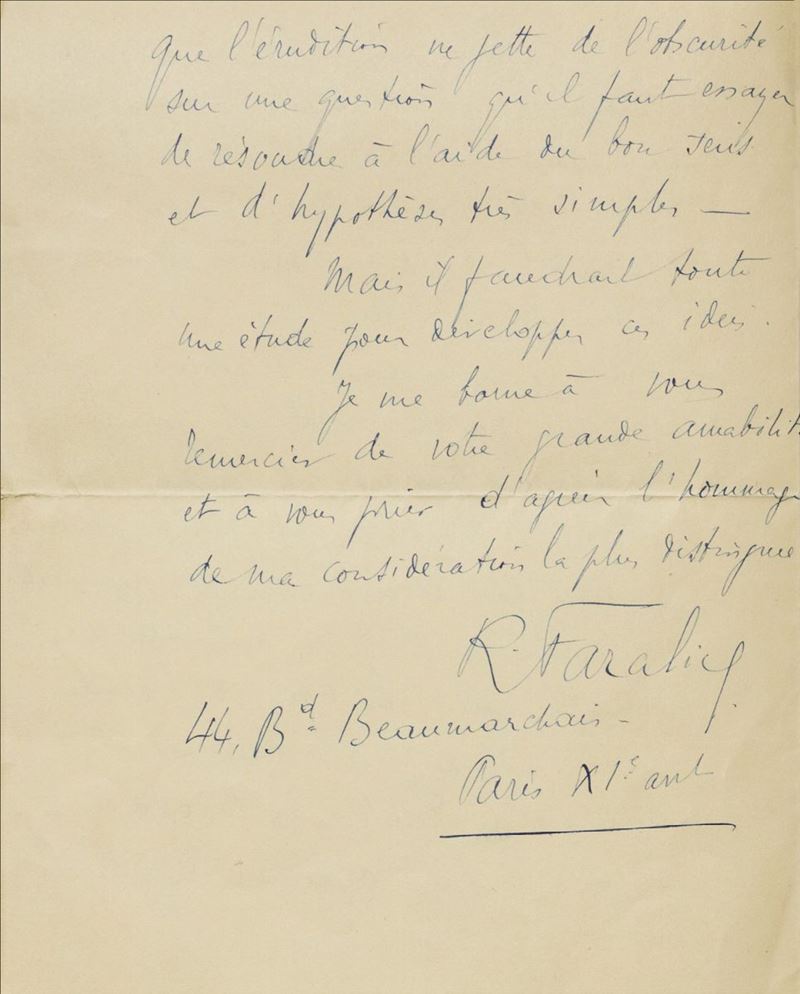 que l'érudition ne jette de l'obscurité
sur une question qu'il faut essayer
de résoudre à l'aide du bon sens
et d'hypothèses très simples —
Mais il faudrait toute
une étude pour développer ces idées.
Je me borne à vous
remercier de votre grande amabilité
et à vous prier d'agréer l'hommage
de ma considération la plus distinguée
R. Faralicq
44, Bd Beaumarchais -
Paris XIe arrt